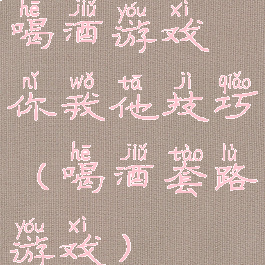 hē jiǔ yóu xì
喝酒游戏
nǐ wǒ tā jì qiǎo
你我他技巧
hē jiǔ tào lù
(喝酒套路
yóu xì
游戏)